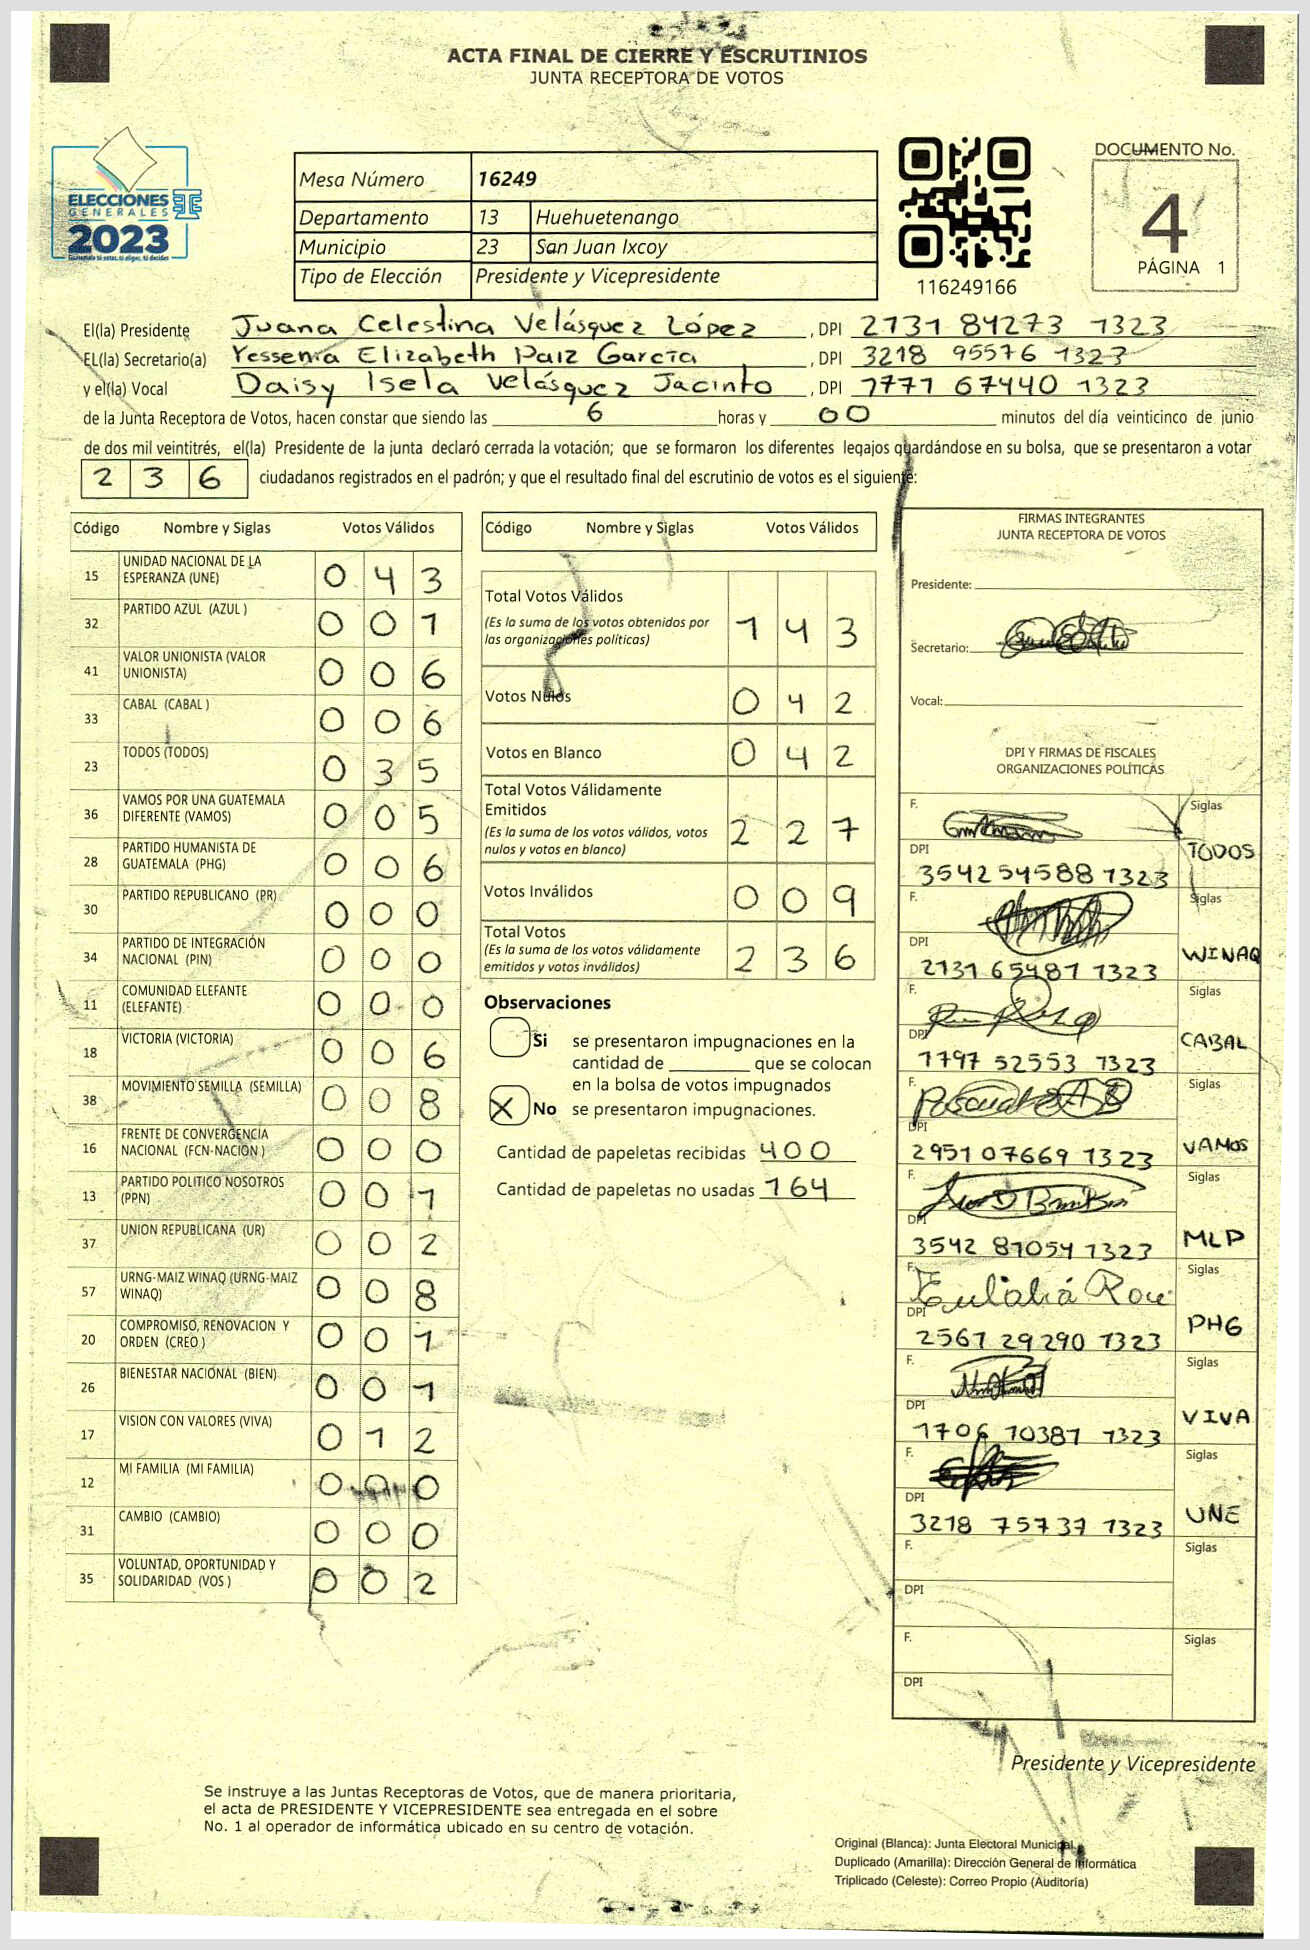 ACTA FINAL DE CIERRE Y ESCRUTINIOS
JUNTA RECEPTORA DE VOTOS
ELECCIONES
GENERALES
2023
Mesa Número 16249
Departamento 13 Huehuetenango
Municipio 23 San Juan Ixcoy
Tipo de Elección Presidente y Vicepresidente
116249166
DOCUMENTO No.
4
PÁGINA 1
El(la) Presidente Juana Celestina Velásquez López, DPI 2131 84273 1323
EL(la) Secretario(a) Yessenia Elizabeth Paiz García, DPI 3218 95576 1323
y el(la) Vocal Daisy Isela Velásquez Jacinto, DPI 1771 67440 1323
de la Junta Receptora de Votos, hacen constar que siendo las 6 horas y 00 minutos del día veinticinco de junio
de dos mil veintitrés, el(la) Presidente de la junta declaró cerrada la votación; que se formaron los diferentes legajos guardándose en su bolsa, que se presentaron a votar
236 ciudadanos registrados en el padrón; y que el resultado final del escrutinio de votos es el siguiente:
Código Nombre y Siglas Votos Válidos
15 UNIDAD NACIONAL DE LA ESPERANZA (UNE) 043
32 PARTIDO AZUL (AZUL ) 001
41 VALOR UNIONISTA (VALOR UNIONISTA) 006
33 CABAL (CABAL ) 006
23 TODOS (TODOS) 035
36 VAMOS POR UNA GUATEMALA DIFERENTE (VAMOS) 005
28 PARTIDO HUMANISTA DE GUATEMALA (PHG) 006
30 PARTIDO REPUBLICANO (PR) 000
34 PARTIDO DE INTEGRACIÓN NACIONAL (PIN) 000
11 COMUNIDAD ELEFANTE (ELEFANTE) 000
18 VICTORIA (VICTORIA) 006
38 MOVIMIENTO SEMILLA (SEMILLA) 008
16 FRENTE DE CONVERGENCIA NACIONAL (FCN-NACION ) 000
13 PARTIDO POLITICO NOSOTROS (PPN) 001
37 UNION REPUBLICANA (UR) 002
57 URNG-MAIZ WINAQ (URNG-MAIZ WINAQ) 008
20 COMPROMISO, RENOVACION Y ORDEN (CREO ) 001
26 BIENESTAR NACIONAL (BIEN) 001
17 VISION CON VALORES (VIVA) 012
12 MI FAMILIA (MI FAMILIA) 000
31 CAMBIO (CAMBIO) 000
35 VOLUNTAD, OPORTUNIDAD Y SOLIDARIDAD (VOS ) 002
Código Nombre y Siglas Votos Válidos
Total Votos Válidos 143
(Es la suma de los votos obtenidos por
las organizaciones políticas)
Votos Nulos 042
Votos en Blanco 042
Total Votos Válidamente
Emitidos 227
(Es la suma de los votos válidos, votos
nulos y votos en blanco)
Votos Inválidos 009
Total Votos 236
(Es la suma de los votos válidamente
emitidos y votos inválidos)
Observaciones
Si se presentaron impugnaciones en la
cantidad de ________ que se colocan
en la bolsa de votos impugnados
X No se presentaron impugnaciones.
Cantidad de papeletas recibidas 400
Cantidad de papeletas no usadas 164
FIRMAS INTEGRANTES
JUNTA RECEPTORA DE VOTOS
Presidente:
Secretario:
Vocal:
DPI Y FIRMAS DE FISCALES
ORGANIZACIONES POLÍTICAS
F. Siglas
TODOS
DPI 3542 54588 1323
F. Siglas
WINAQ
DPI 2131 65481 1323
F. Siglas
CABAL
DPI 1797 52553 1323
F. Siglas
VAMOS
DPI 2951 07669 1323
F. Siglas
MLP
DPI 3542 81054 1323
F. Eulalia Siglas
PHG
DPI 2561 29290 1323
F. Siglas
VIVA
DPI 1706 10381 1323
F. Siglas
UNE
DPI 3218 75737 1323
F. Siglas
DPI
F. Siglas
DPI
Presidente y Vicepresidente
Se instruye a las Juntas Receptoras de Votos, que de manera prioritaria,
el acta de PRESIDENTE Y VICEPRESIDENTE sea entregada en el sobre
No. 1 al operador de informática ubicado en su centro de votación.
Original (Blanca): Junta Electoral Municipal
Duplicado (Amarilla): Dirección General de Informática
Triplicado (Celeste): Correo Propio (Auditoría)